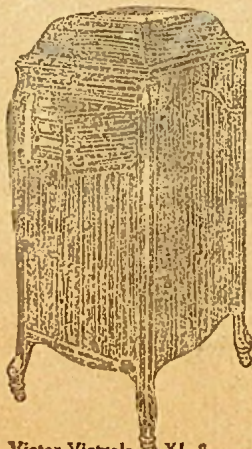 Victor Victrola XI,